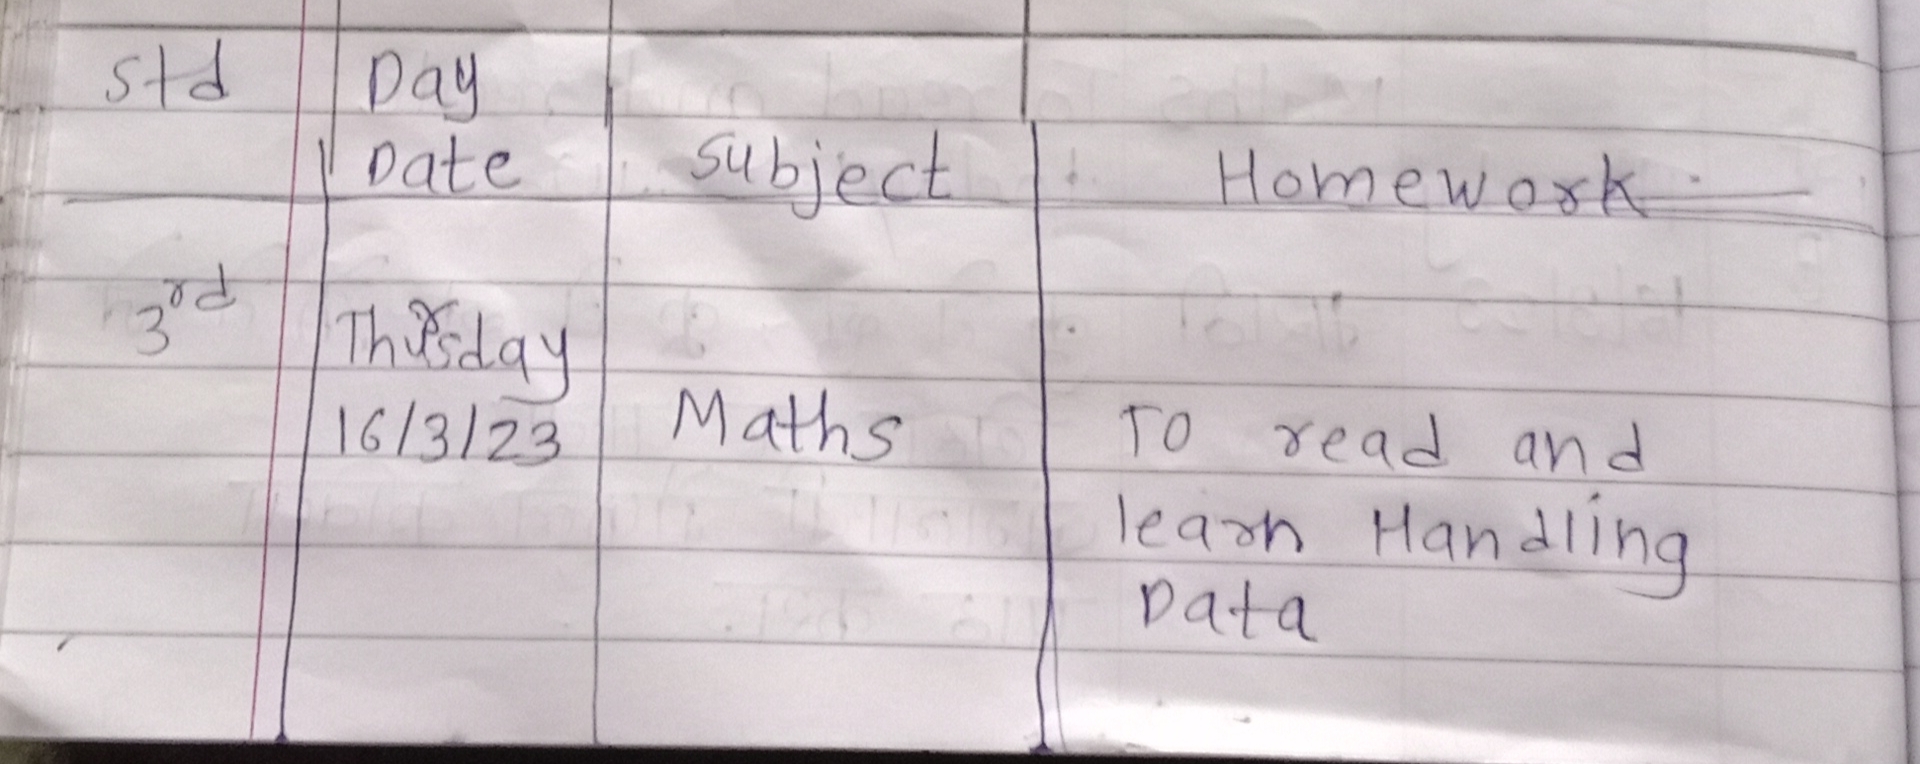 Std Day
Date Subject Homework.
3rd Thursday
16/3/23 Maths To read and
learn Handling
Data